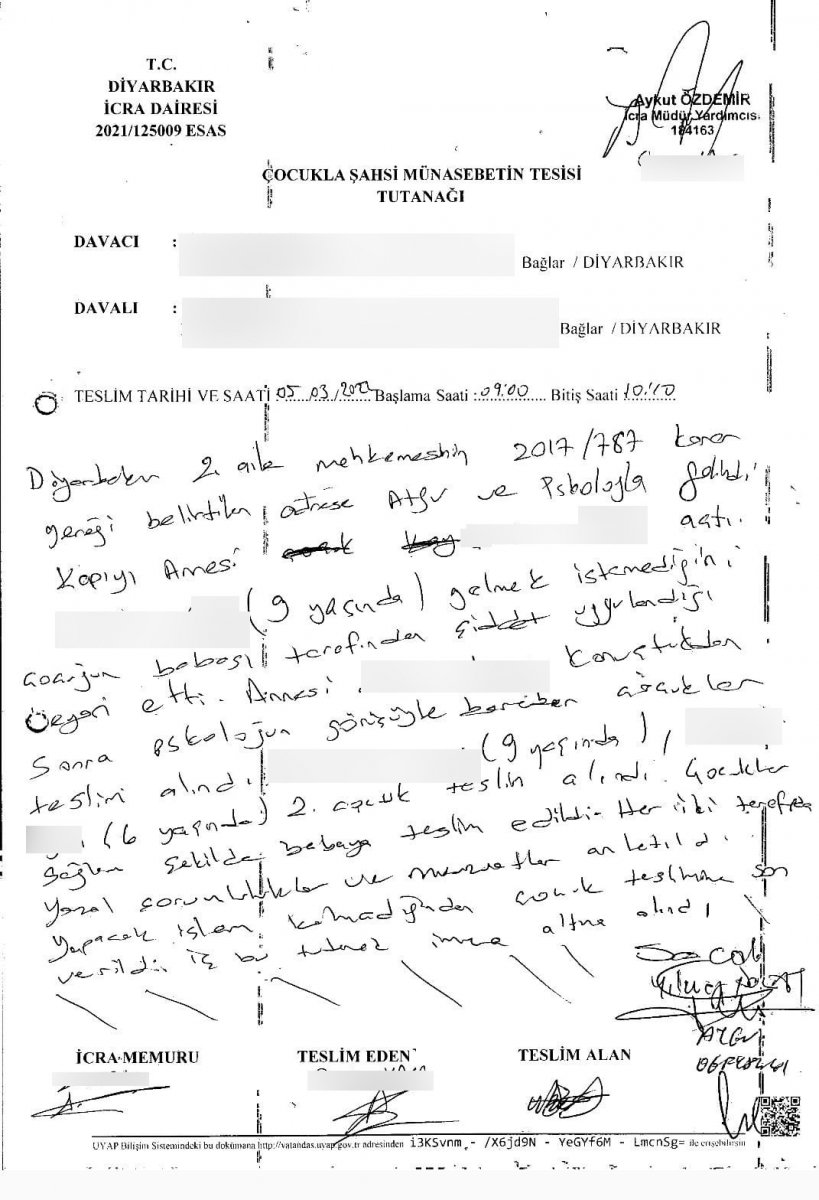 T.C.
DİYARBAKIR
İCRA DAİRESİ
2021/125009 ESAS
Aykut ÖZDEMİR
İcra Müdür Yardımcıs.
184163
ÇOCUKLA ŞAHSİ MÜNASEBETİN TESİSİ
TUTANAĞI
DAVACI :
Bağlar / DİYARBAKIR
DAVALI :
Bağlar / DİYARBAKIR
TESLİM TARİHİ VE SAATİ 05.03./2022 Başlama Saati :.09:00.... Bitiş Saati 10:10
Diyarbakır 2. aile mahkemesinin 2017/787 karar
gereği belirtilen adrese ATGV ve Psikologla gelindi
Kapıyı Annesi açtı.
(9 yaşında) gelmek istemediğini
çocuğun babası tarafından şiddet uygulandığı
beyan etti. Annesi konuştuktan
sonra psikoloğun görüşüyle beraber çocuklar
teslim alındı. (9 yaşında),
(6 yaşında) 2. çocuk teslim alındı. Çocuklar
sağlam şekilde babaya teslim edildi. Her iki tarafada
yasal sorumluluklar ve anlatıldı.
yapacak işlem kalmadığından çocuk teslimine son
verildi. iş bu tutanak imza altına alındı
İCRA MEMURU TESLİM EDEN TESLİM ALAN
UYAP Bilişim Sistemindeki bu dokümana http://vatandas.uyap.gov.tr adresinden i3KSvnm - /X6jd9N - YeGYf6M - LmcnSg= ile erişebilirsin